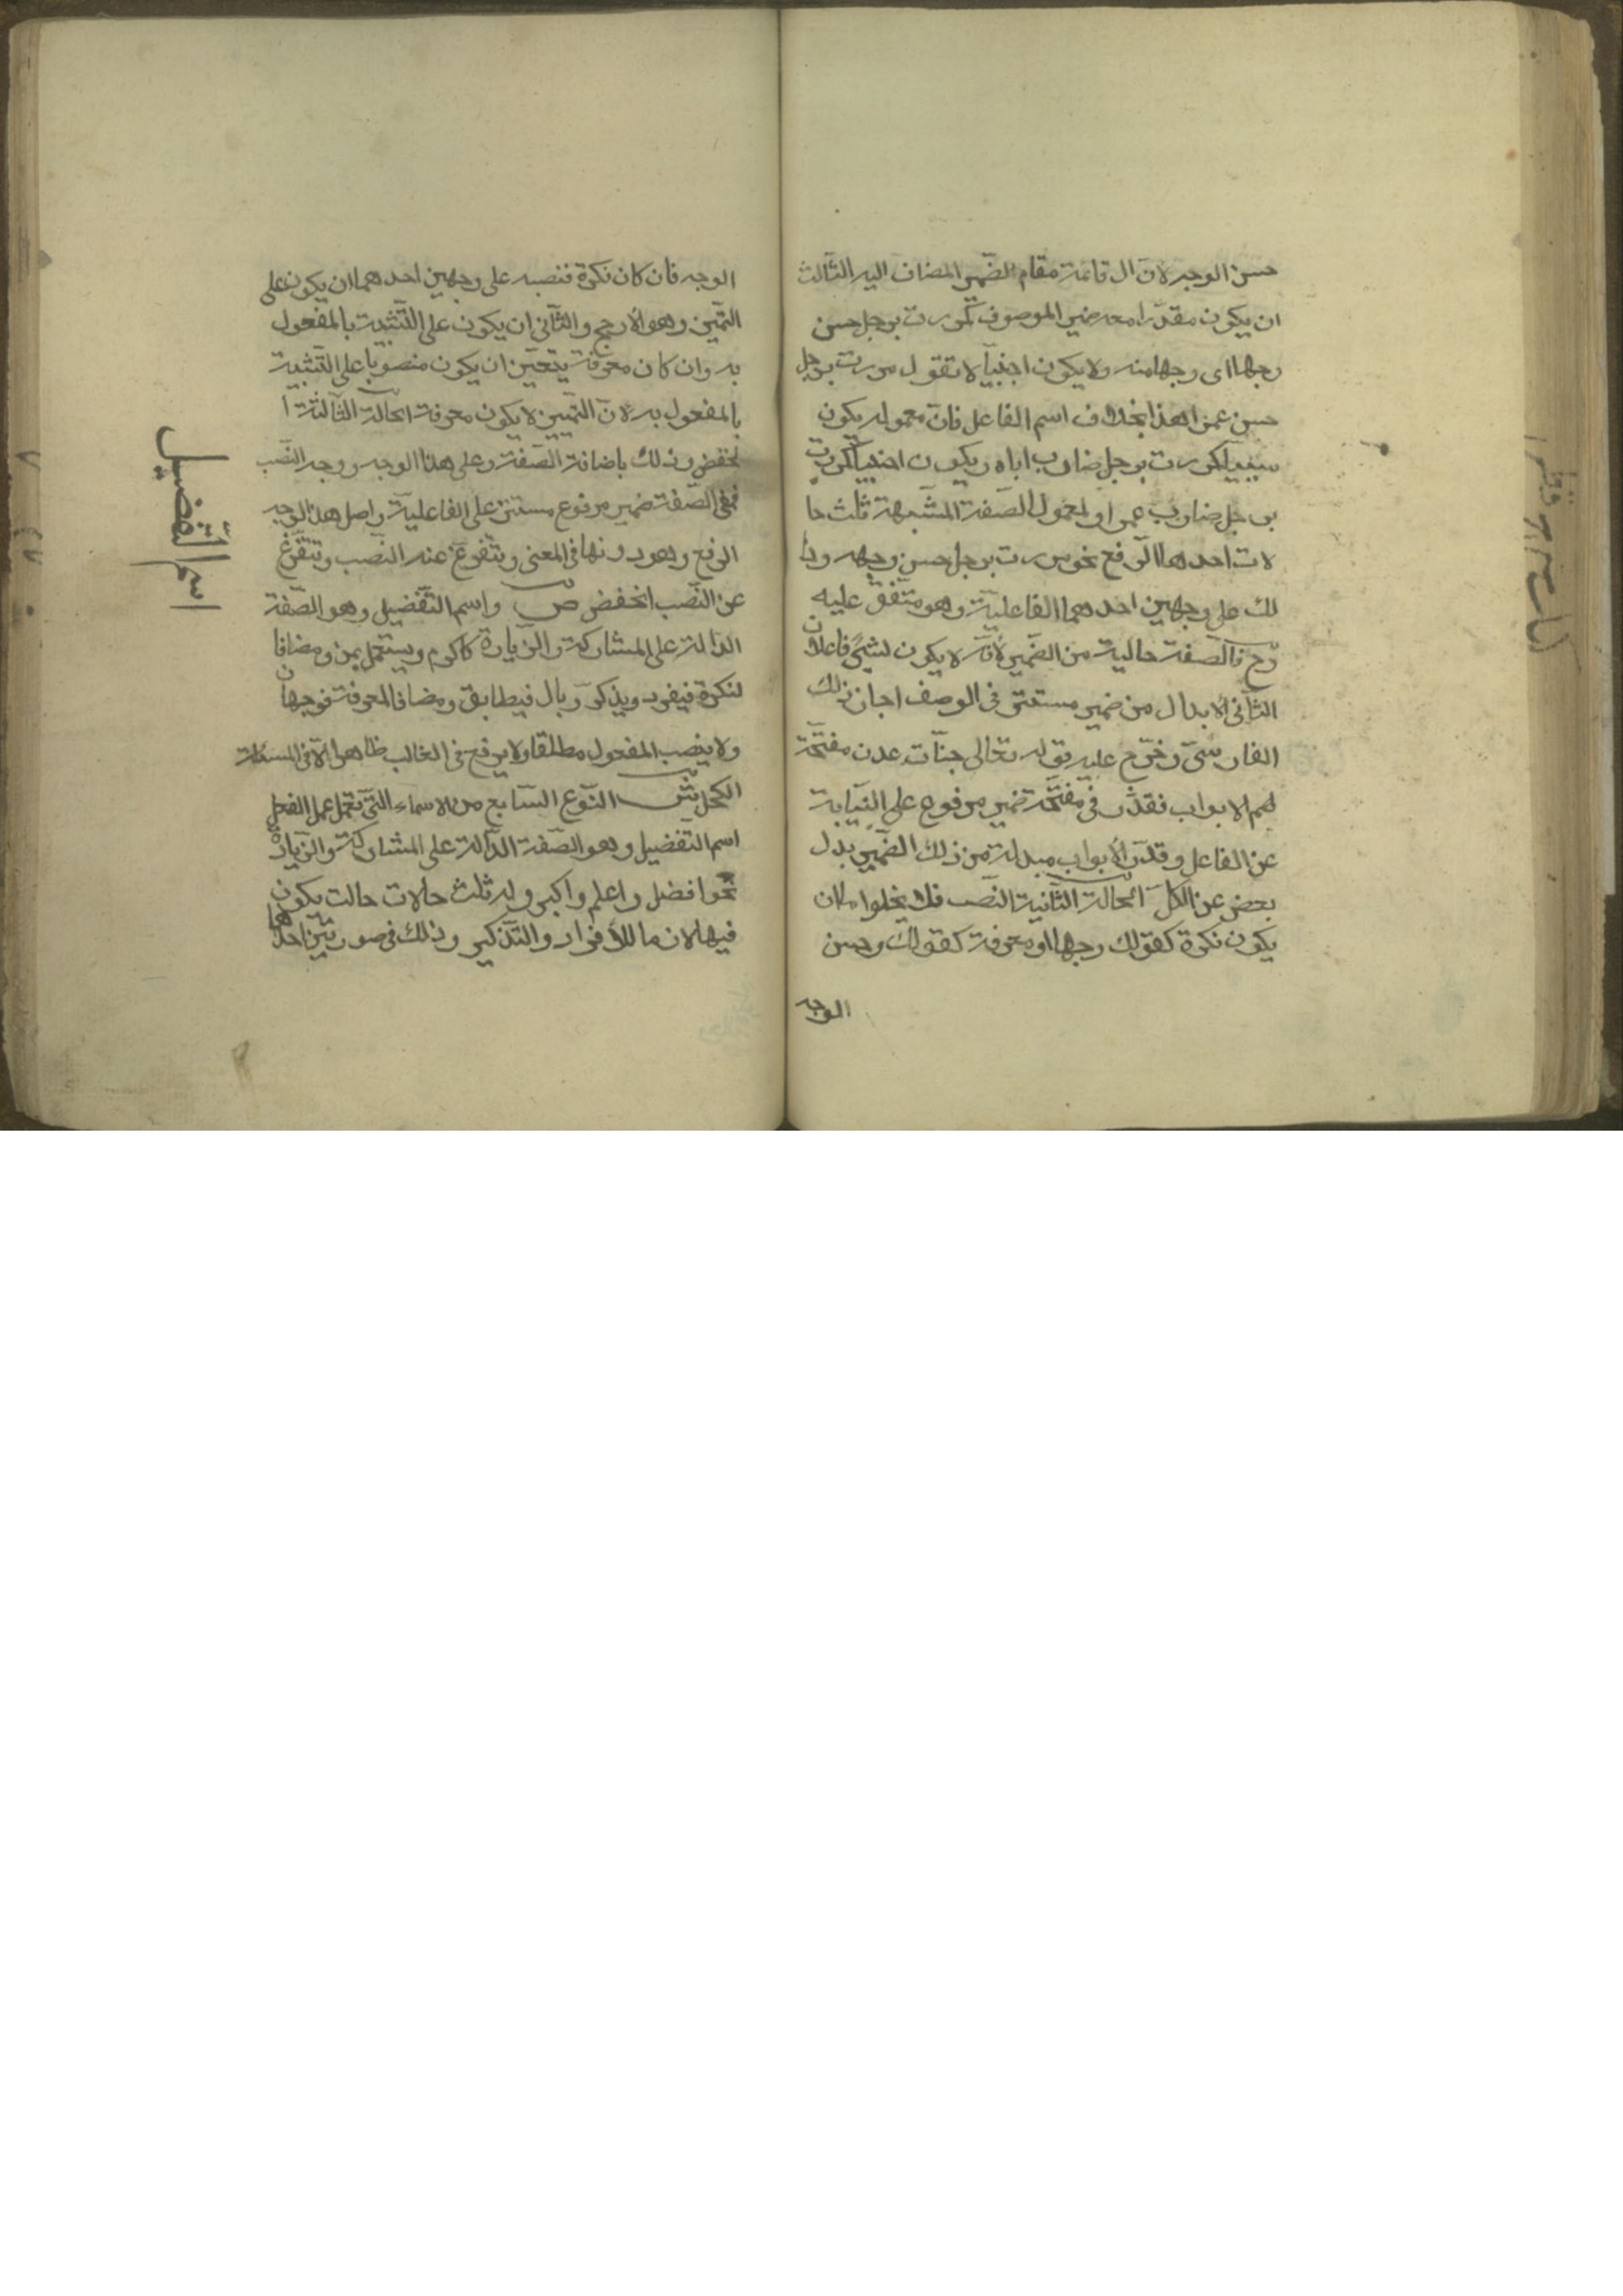 حسن الوجه لانّ ال قائمة مقام الضّمير المضاف اليه الثّالث
ان يكون مقدّرا معه ضمير الموصوف كمررت برجل حسن
وجها اى وجها منه ولا يكون اجنبيّا لا تقول مررت برجل
حسن عمرا هذا بخلاف اسم الفاعل فانّ معموله يكون
سببيّا كمررت برجل ضارب اباه ويكون اجنبيّا كمررت
برجل ضارب عمرا ولمعمول الصّفة المشّبهة ثلث حا
لات احدها الرّفع نحو مررت برجل حسن وجهه وذ
لك على وجهين احدهما الفاعليّة وهو متّفق عليه
وح فالصّفة خالية من الضّمير لأنّه لا يكون لشئ فاعلان
الثّانى الابدال من ضمير مستتر فى الوصف اجاز ذلك
الفارسّى وخرّج عليه قوله تعالى جنّات عدن مفتّحة
لهم الابواب فقدّر فى مفتّحة ضمير مرفوع على النّيابة
عن الفاعل وقدّر الأبواب مبدلة من ذلك الضّمير بدل
بعض عن الكلّ الحالة الثّانية النّصب فلا يخلوا ما ان
يكون نكرة كقولك وجها او معرفة كقولك وحسن
الوجه
الوجه فان كان نكرة فنصبه على وجهين احدهما ان يكون على
التّميز وهو الأرجح والثّانى ان يكون على التّشبية بالمفعول
به وان كان معرفة يتعيّن ان يكون منصوبا على التّشبية
بالمفعول به لانّ التّمييز لا يكون معرفة الحالة الثّالثة ا
لخفض وذلك باضافة الصّفة وعلى هذا الوجه ووجه النّصب
ففى الصّفة ضمير مرفوع مستتر على الفاعليّة واصل هذا الوجه
الرفع وهو دونها فى المعنى ويتفرّع عنه النّصب ويتفرّع
عن النّصب الخفض ص واسم التّفضيل وهو الصّفة
الدّالة على المشاركة والزّيادة كاكرم ويستعمل بمن ومضافا
لنكرة فيفرد ويذكّر وبال فيطابق ومضافا لمعرفة فوجهان
ولا ينصب المفعول مطلقا ولا يرفع فى الغالب ظاهرا الّا فى المسئلة
الكحل ش النّوع السّابع من الاسماء التّى تعمل عمل الفعل
اسم التّفضيل وهو الصّفة الدّالة على المشاركة والزّيادة
نحو افضل واعلم واكبر وله ثلث حالات حالت يكون
فيها لازما للأفراد والتّذكير وذلك فى صورتين احدهما
اسم التّفضيل